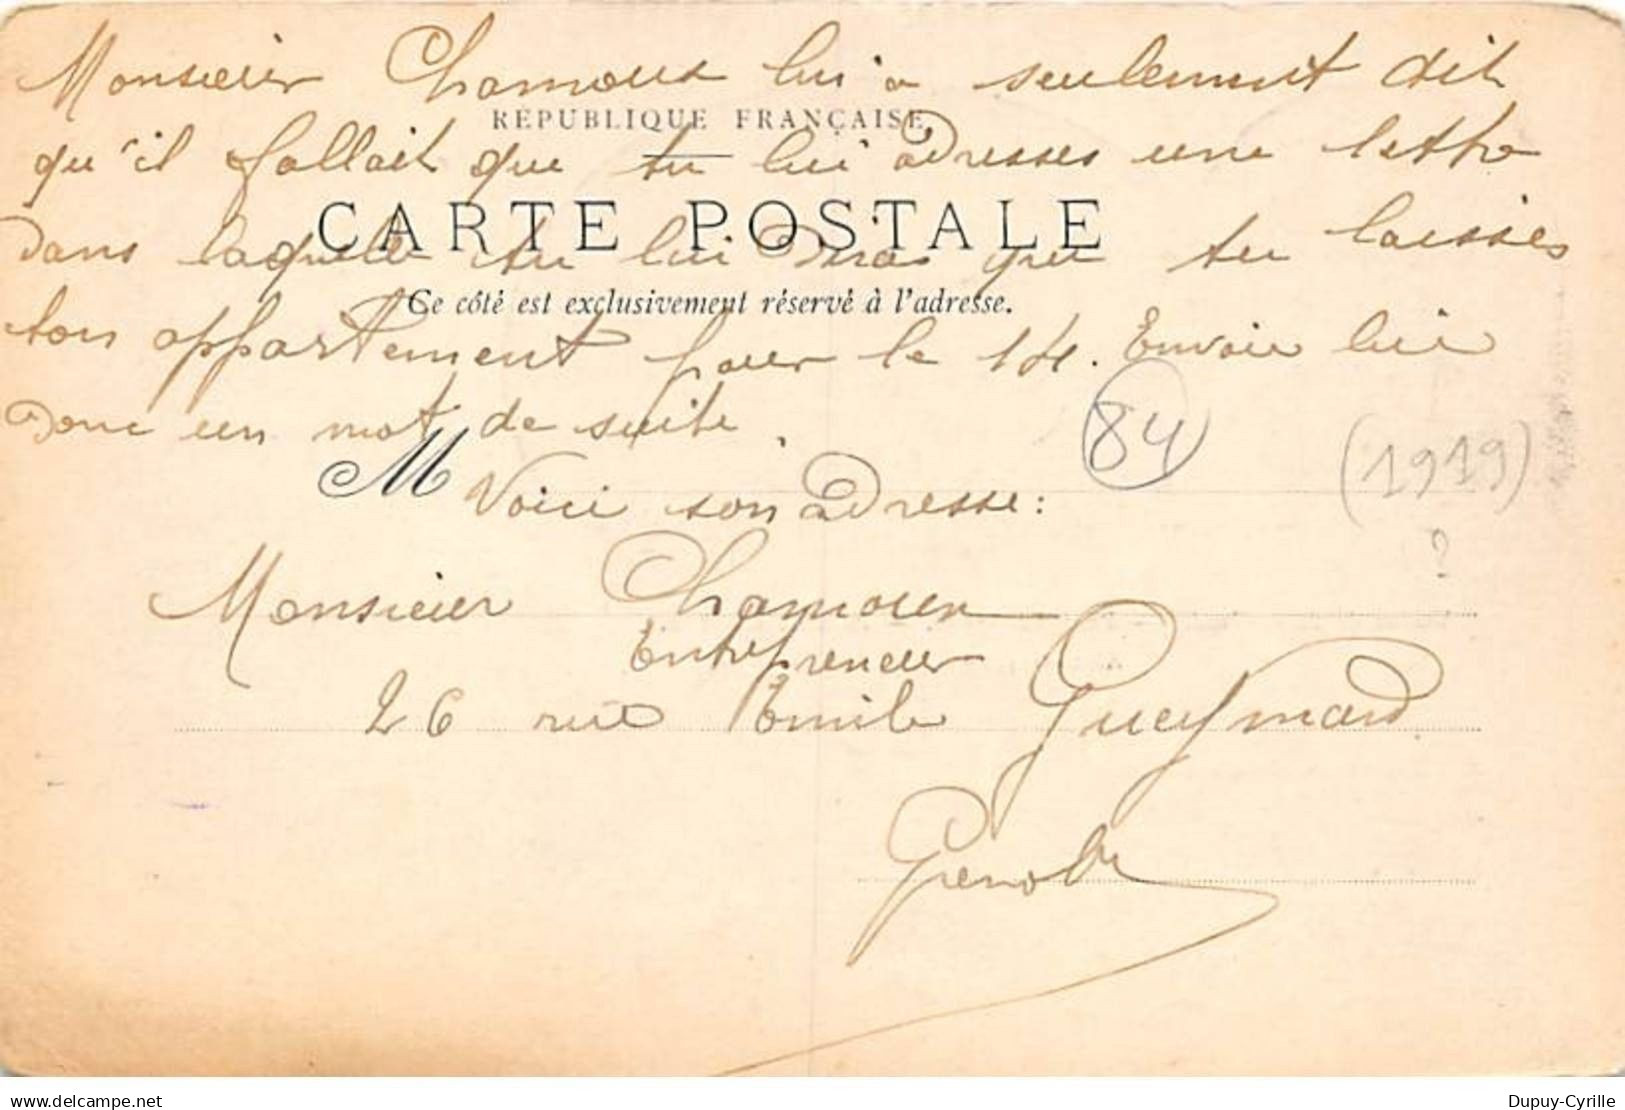 Monsieur Chamoux lui a seulement dit
RÉPUBLIQUE FRANÇAISE
qu'il fallait que tu lui adresses une lettre
CARTE POSTALE
dans laquelle tu lui diras que tu laisses
Ce côté est exclusivement réservé à l'adresse.
ton appartement pour le 14. Envoie lui
donc un mot de suite.
84
(1919)
M
Voici son adresse:
?
Monsieur Chamoux
Entrepreneur
26 rue Emile Gueymard
Grenoble
delcampe.net
Dupuy-Cyrille